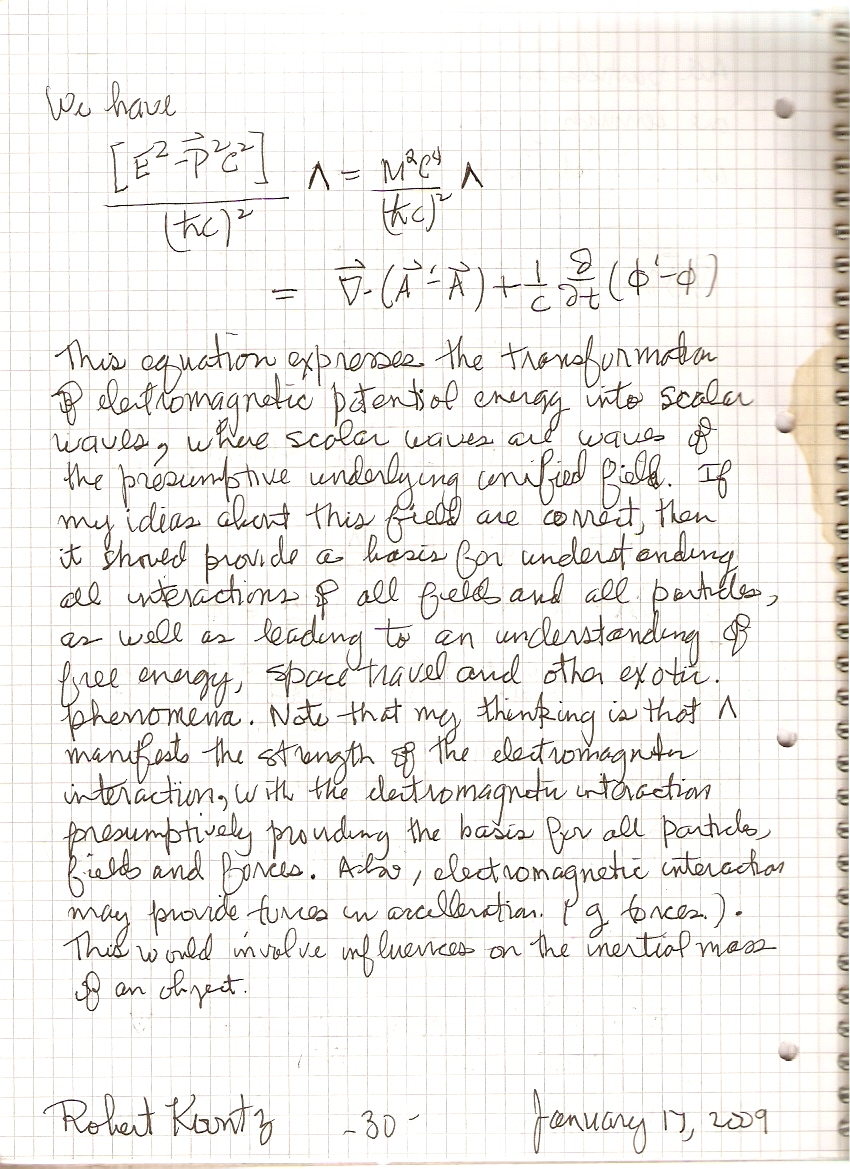 We have
[E² - P⃗²c²] / (ħc)² Λ = M²c⁴ / (ħc)² Λ
= ∇⃗·(A⃗' - A⃗) + 1/c ∂/∂t (ϕ' - ϕ)
This equation expresses the transformation
of electromagnetic potential energy into scalar
waves, where scalar waves are waves of
the presumptive underlying unified field. If
my ideas about this field are correct, then
it should provide a basis for understanding
all interactions of all fields and all particles,
as well as leading to an understanding of
free energy, space travel and other exotic.
phenomena. Note that my thinking is that Λ
manifests the strength of the electromagnetic
interaction, with the electromagnetic interaction
presumptively providing the basis for all particles,
fields and forces. Also, electromagnetic interaction
may provide forces in accelleration. (g forces.).
This would involve influences on the inertial mass
of an object.
Robert Kuntz -30- January 17, 2009